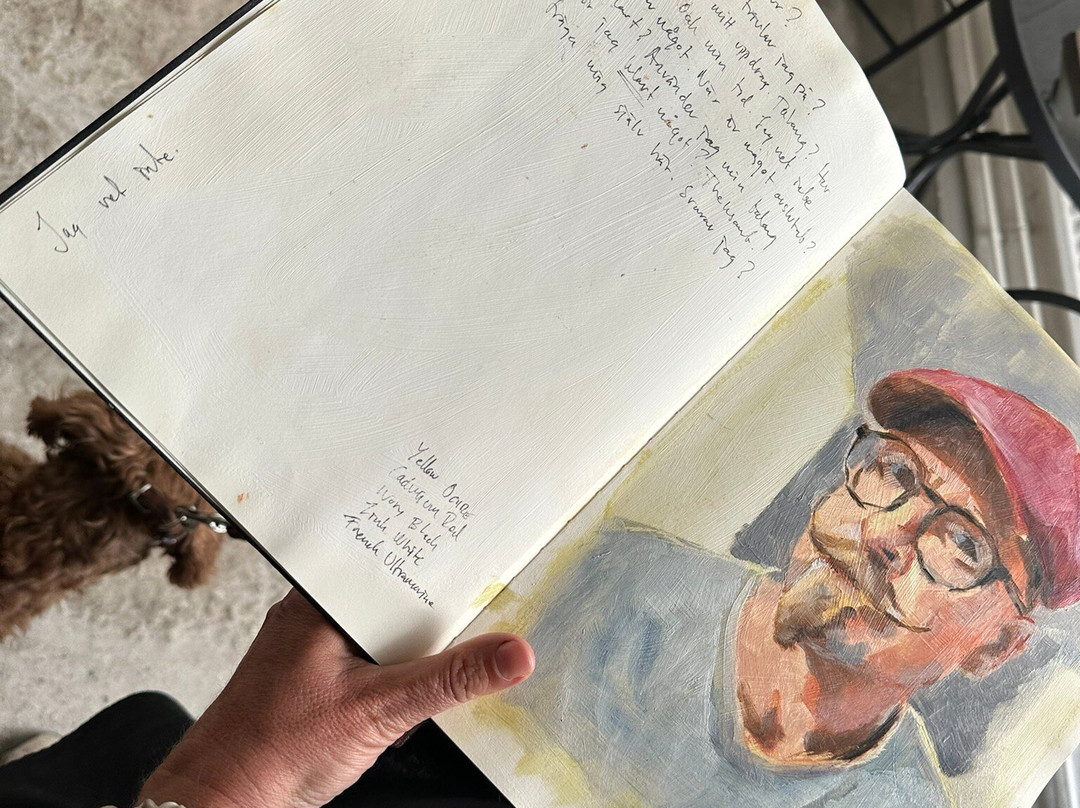 tvivlar jag på?
mitt uppdrag. Talang? Hur
Och min tid. Jag vet inte
något. När är något avslutat?
klart? Använder jag min talang
jag klart något? Tveksamt.
Fråga mig själv här. Svarar jag?
Jag vet inte.
Yellow Ocre
Cadmium Red
Ivory Black
Zink White
French Ultramarine